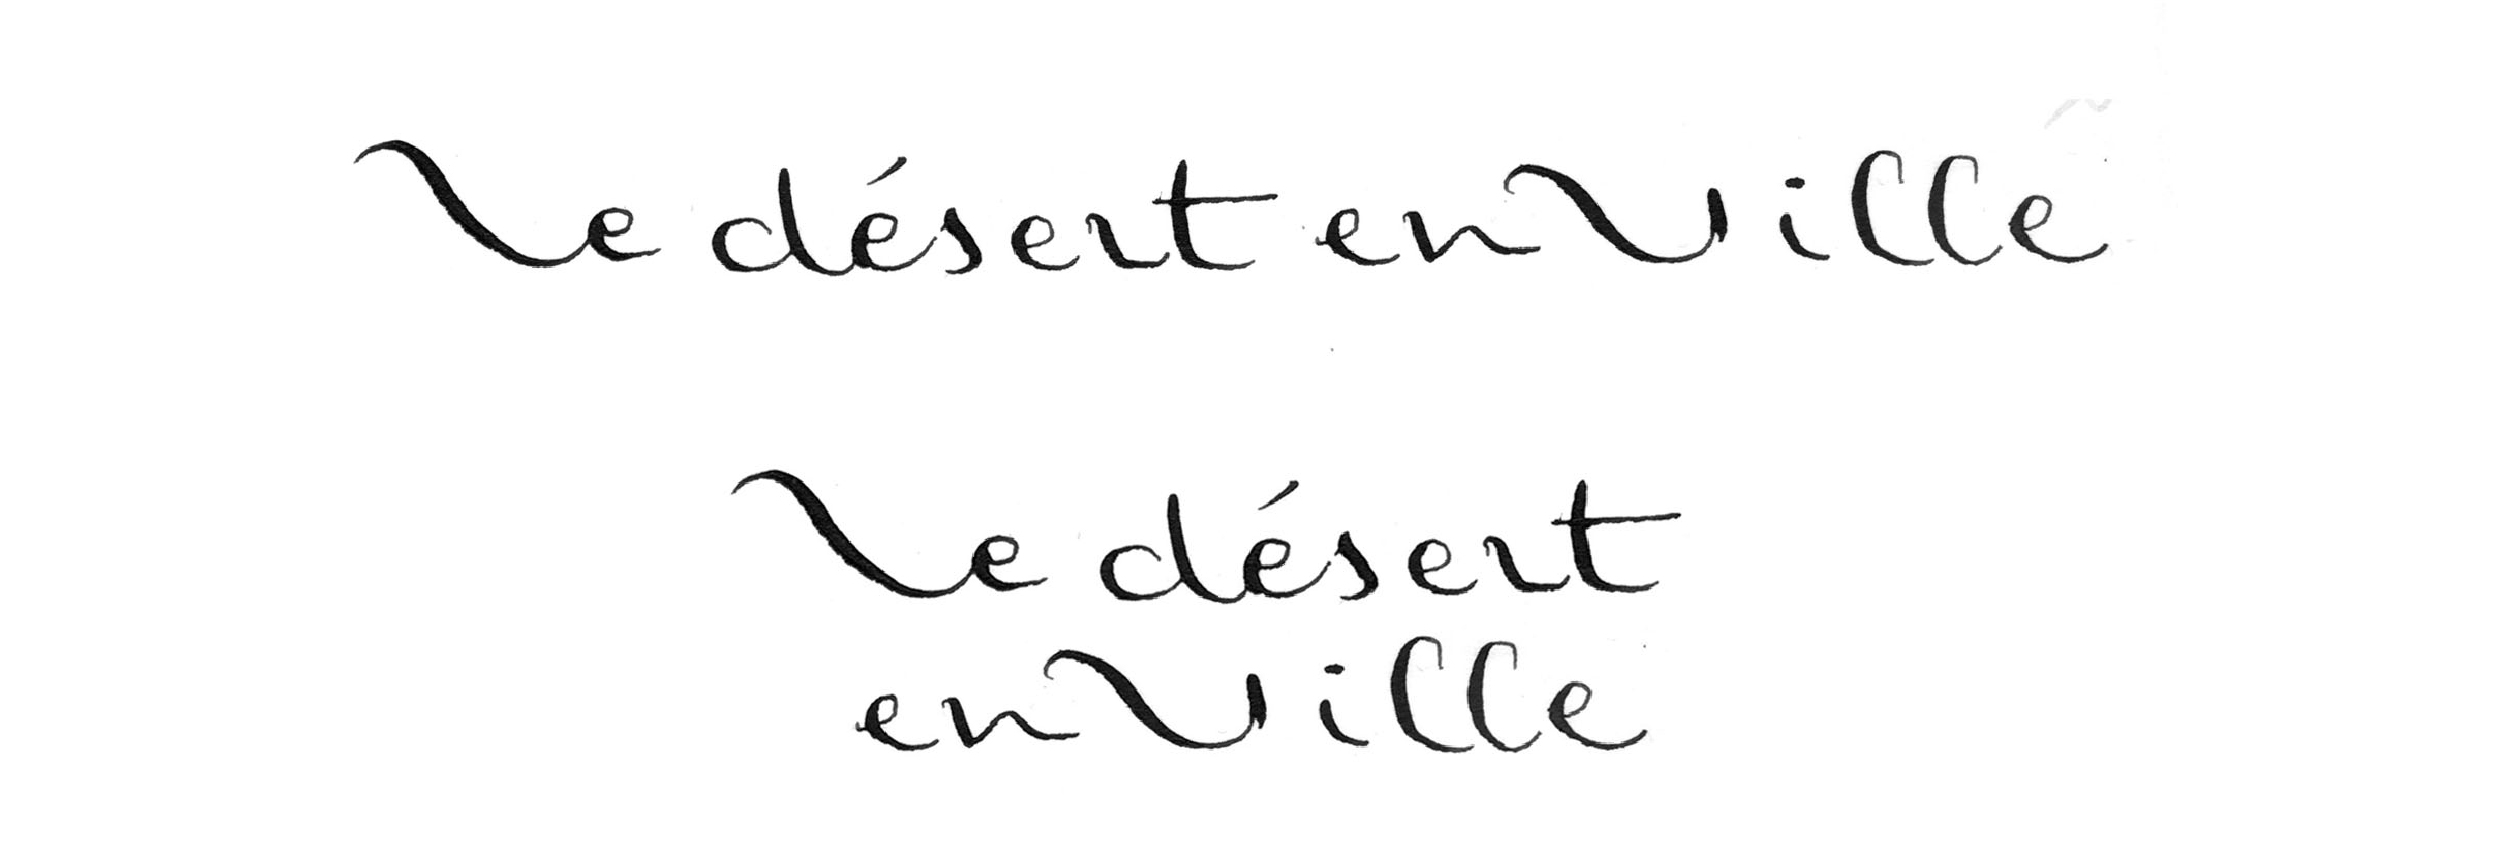 Le désert en Ville
Le désert
en Ville